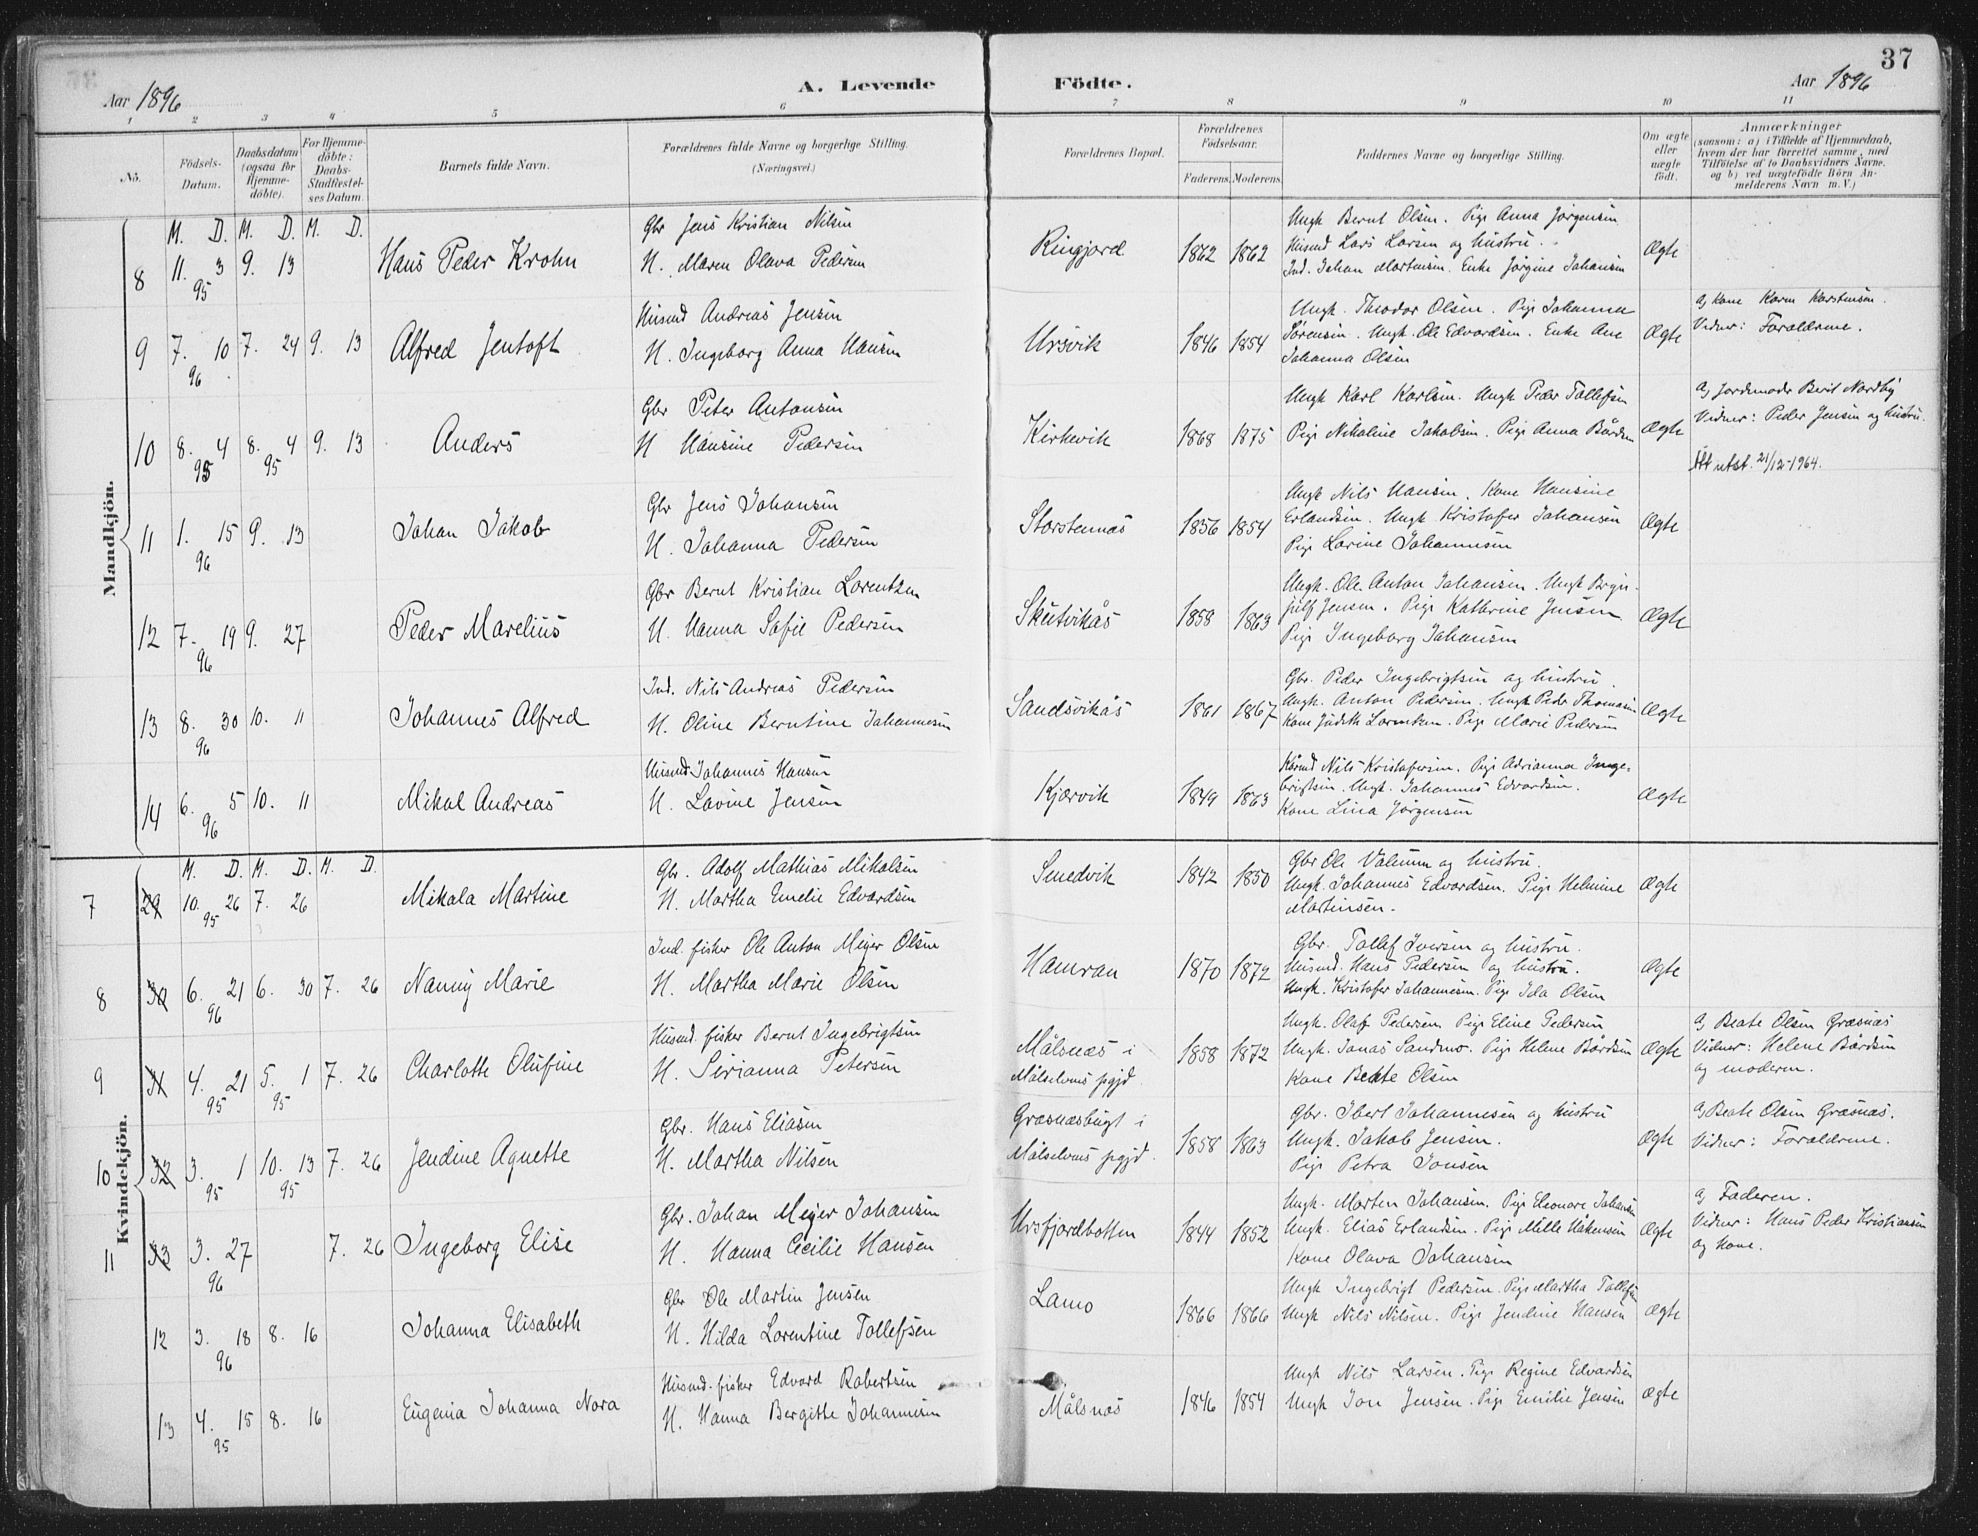 37
Aar 1896
A. Levende
Födte.
Aar 1896
1 2 3 4 5 6 7 8 9 10 11
Nö.
Födsels-
Datum.
Daabsdatum
(ogsaa for
Hjemme-
döbte).
For Hjemme-
döbte:
Daabs-
Stadfæstel-
ses Datum.
Barnets fulde Navn.
Forældrenes fulde Navne og borgerlige Stilling.
(Næringsvei.)
Forældrenes Bopæl.
Forældrenes
Födselsaar.
Faderens. Moderens.
Faddernes Navne og borgerlige Stilling.
Om ægte
eller
uægte
födt.
Anmærkninger
(saasom: a) i Tilfælde af Hjemmedaab,
hvem der har forrettet samme, med
Tilföielse af to Daabsvidners Navne.
og b) ved uægtefödte Börn An-
melderens Navn m. V.)
Mandkjön.
M. D. M. D. M. D.
8 11. 3 95 9. 13
Hans Peder Krohn
Gbr Jens Kristian Nilsen
H. Maren Olava Pedersen
Ringjord 1862 1862
Ungk Bernt Olsen. Pige Anna Jørgensen
Husmd Lars Larsen og hustru.
Ind. Johan Martensen. Enke Jørgine Johansen
Ægte
9 7. 10 96 7. 24 9. 13
Alfred Jentoft
Husmd Andreas Jensen
H. Ingeborg Anna Hansen
Ursvik 1846 1854
Ungk. Theodor Olsen. Pige Johanna
Sørensen. Ungk. Ole Edvardsen. Enke Ane
Johanna Olsen
Ægte
a) Kone Karen Karstensen.
Vidner: Forældrene.
10 8. 4 95 8. 4 95 9. 13
Anders
Gbr Peter Antonsen
H Hansine Pedersen
Kirkevik 1868 1875
Ungk Karl Karlsen. Ungk Peder Tollefsen
Pige Nikoline Jakobsen. Pige Anna Bårdsen
Ægte
a) Jordemoder Berit Nordby
Vidner: Peder Jensen og hustru.
Att utst. 21/12-1964.
11 1. 15 96 9. 13
Johan Jakob
Gbr Jens Johansen
H. Johanna Pedersen
Storstennæs 1856 1854
Ungk Nils Hansen. Kone Hansine
Erlandsen. Ungk Kristofer Johansen
Pige Lovine Johannesen
Ægte
12 7- 19 96 9. 27
Peder Marelius
Gbr Bernt Kristian Lorentzen
H. Hanna Sofie Pedersen
Skutvikås 1858 1863
Ungk. Ole Anton Johansen. Ungk Bryn-
julf Jensen. Pige Kathrine Jensen
Pige Ingeborg Johansen
Ægte
13 8. 30 96 10. 11
Johannes Alfred
Ind. Nils Andreas Pedersen
H. Oline Berntine Johannesen
Sandsvikås 1861 1867
Gbr. Peder Ingebrigtsen og hustru.
Ungk. Anton Pedersen. Ungk Peder Thomasen
Kone Judith Lorentzen. Pige Marie Pedersen
Ægte
14 6. 5 96 10. 11
Mikal Andreas
Husmd Johannes Hansen
H. Lovine Jensen
Kjærvik 1849 1863
Kårmd Nils Kristofersen. Pige Adrianna Inge-
brigtsen. Ungk. Johannes Edvardsen.
Kone Lina Jørgensen
Ægte
Kvindekjön.
M. D. M. D. M. D.
7 29 10. 26 95 7. 26
Mikala Martine
Gbr. Adolf Mathias Mikalsen
H. Martha Emelie Edvardsen
Smedvik 1842 1850
Gbr Ole Valnum og hustru.
Ungk. Johannes Edvardsen. Pige Helmine
Martinsen.
Ægte
8 30 6. 21 96 6. 30 7. 26
Nanny Marie
Ind. fisker Ole Anton Meyer Olsen
H. Martha Marie Olsen
Hamran 1870 1872
Gbr. Tollef Iversen og hustru.
Husmd. Hans Pedersen og hustru.
Ungk. Kristofer Johannesen. Pige Ida Olsen
Ægte
9 31 4. 21 95 5. 1 95 7. 26
Charlotte Olufine
Husmd. fisker Bernt Ingebrigtsen
H. Sirianna Petersen
Målsnæs i
Målselvens pgjd. 1858 1872
Ungk. Olaf Pedersen. Pige Eline Pedersen
Ungk. Jonas Sandmo. Pige Helene Bårdsen
Kone Beate Olsen
Ægte
a) Beate Olsen Græsnæs
Vidner: Helene Bårdsen
og moderen.
10 32 3. 1 95 10. 13 95 7. 26
Jendine Agnette
Gbr. Hans Eliasen
H. Martha Nilsen
Græsnæsbugt i
Målselvens pgjd. 1858 1863
Gbr. Ibert Johannesen og hustru
Ungk. Jakob Jensen.
Pige Petra Jonsen
Ægte
a) Beate Olsen Græsnæs.
Vidner: Forældrene.
11 33 3. 27 96 7. 26
Ingeborg Elise
Gbr. Johan Meyer Johansen
H. Hanna Cecilie Hansen
Ursfjordbotten 1844 1852
Ungk. Morten Johansen. Pige Eleonore Johansen
Ungk. Elias Erlandsen. Pige Mille Håkensen
Kone Olava Johansen
Ægte
a) Faderen.
Vidner: Hans Peder Kristiansen
og Kone.
12 3. 18 96 8. 16
Johanna Elisabeth
Gbr Ole Martin Jensen
H. Hilda Lorentine Tollefsen
Lamo 1866 1866
Ungk Ingebrigt Pedersen. Pige Martha Tollefsen
Ungk Nils Nilsen. Pige Jendine Hansen
Ægte
13 4. 15 95 8. 16
Eugenia Johanna Nora
Husmd. fisker Edvard Robertsen
H. Hanna Bergitte Johannesen
Målsnæs 1846 1854
Ungk Nils Larsen. Pige Regine Edvardsen
Ungk Jon Jensen. Pige Emilie Jensen
Ægte